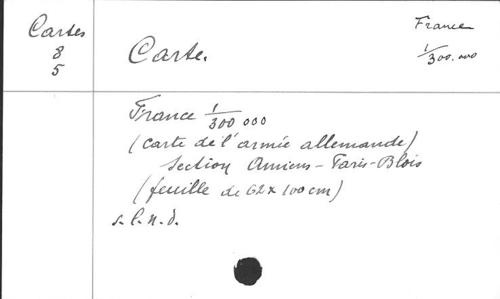 Cartes
8
5
Carte.
France
1/300.000
France 1/300 000
(carte de l'armée allemande)
Section Amiens - Paris - Blois
(feuille de 62 x 100 cm)
s. l. n. d.